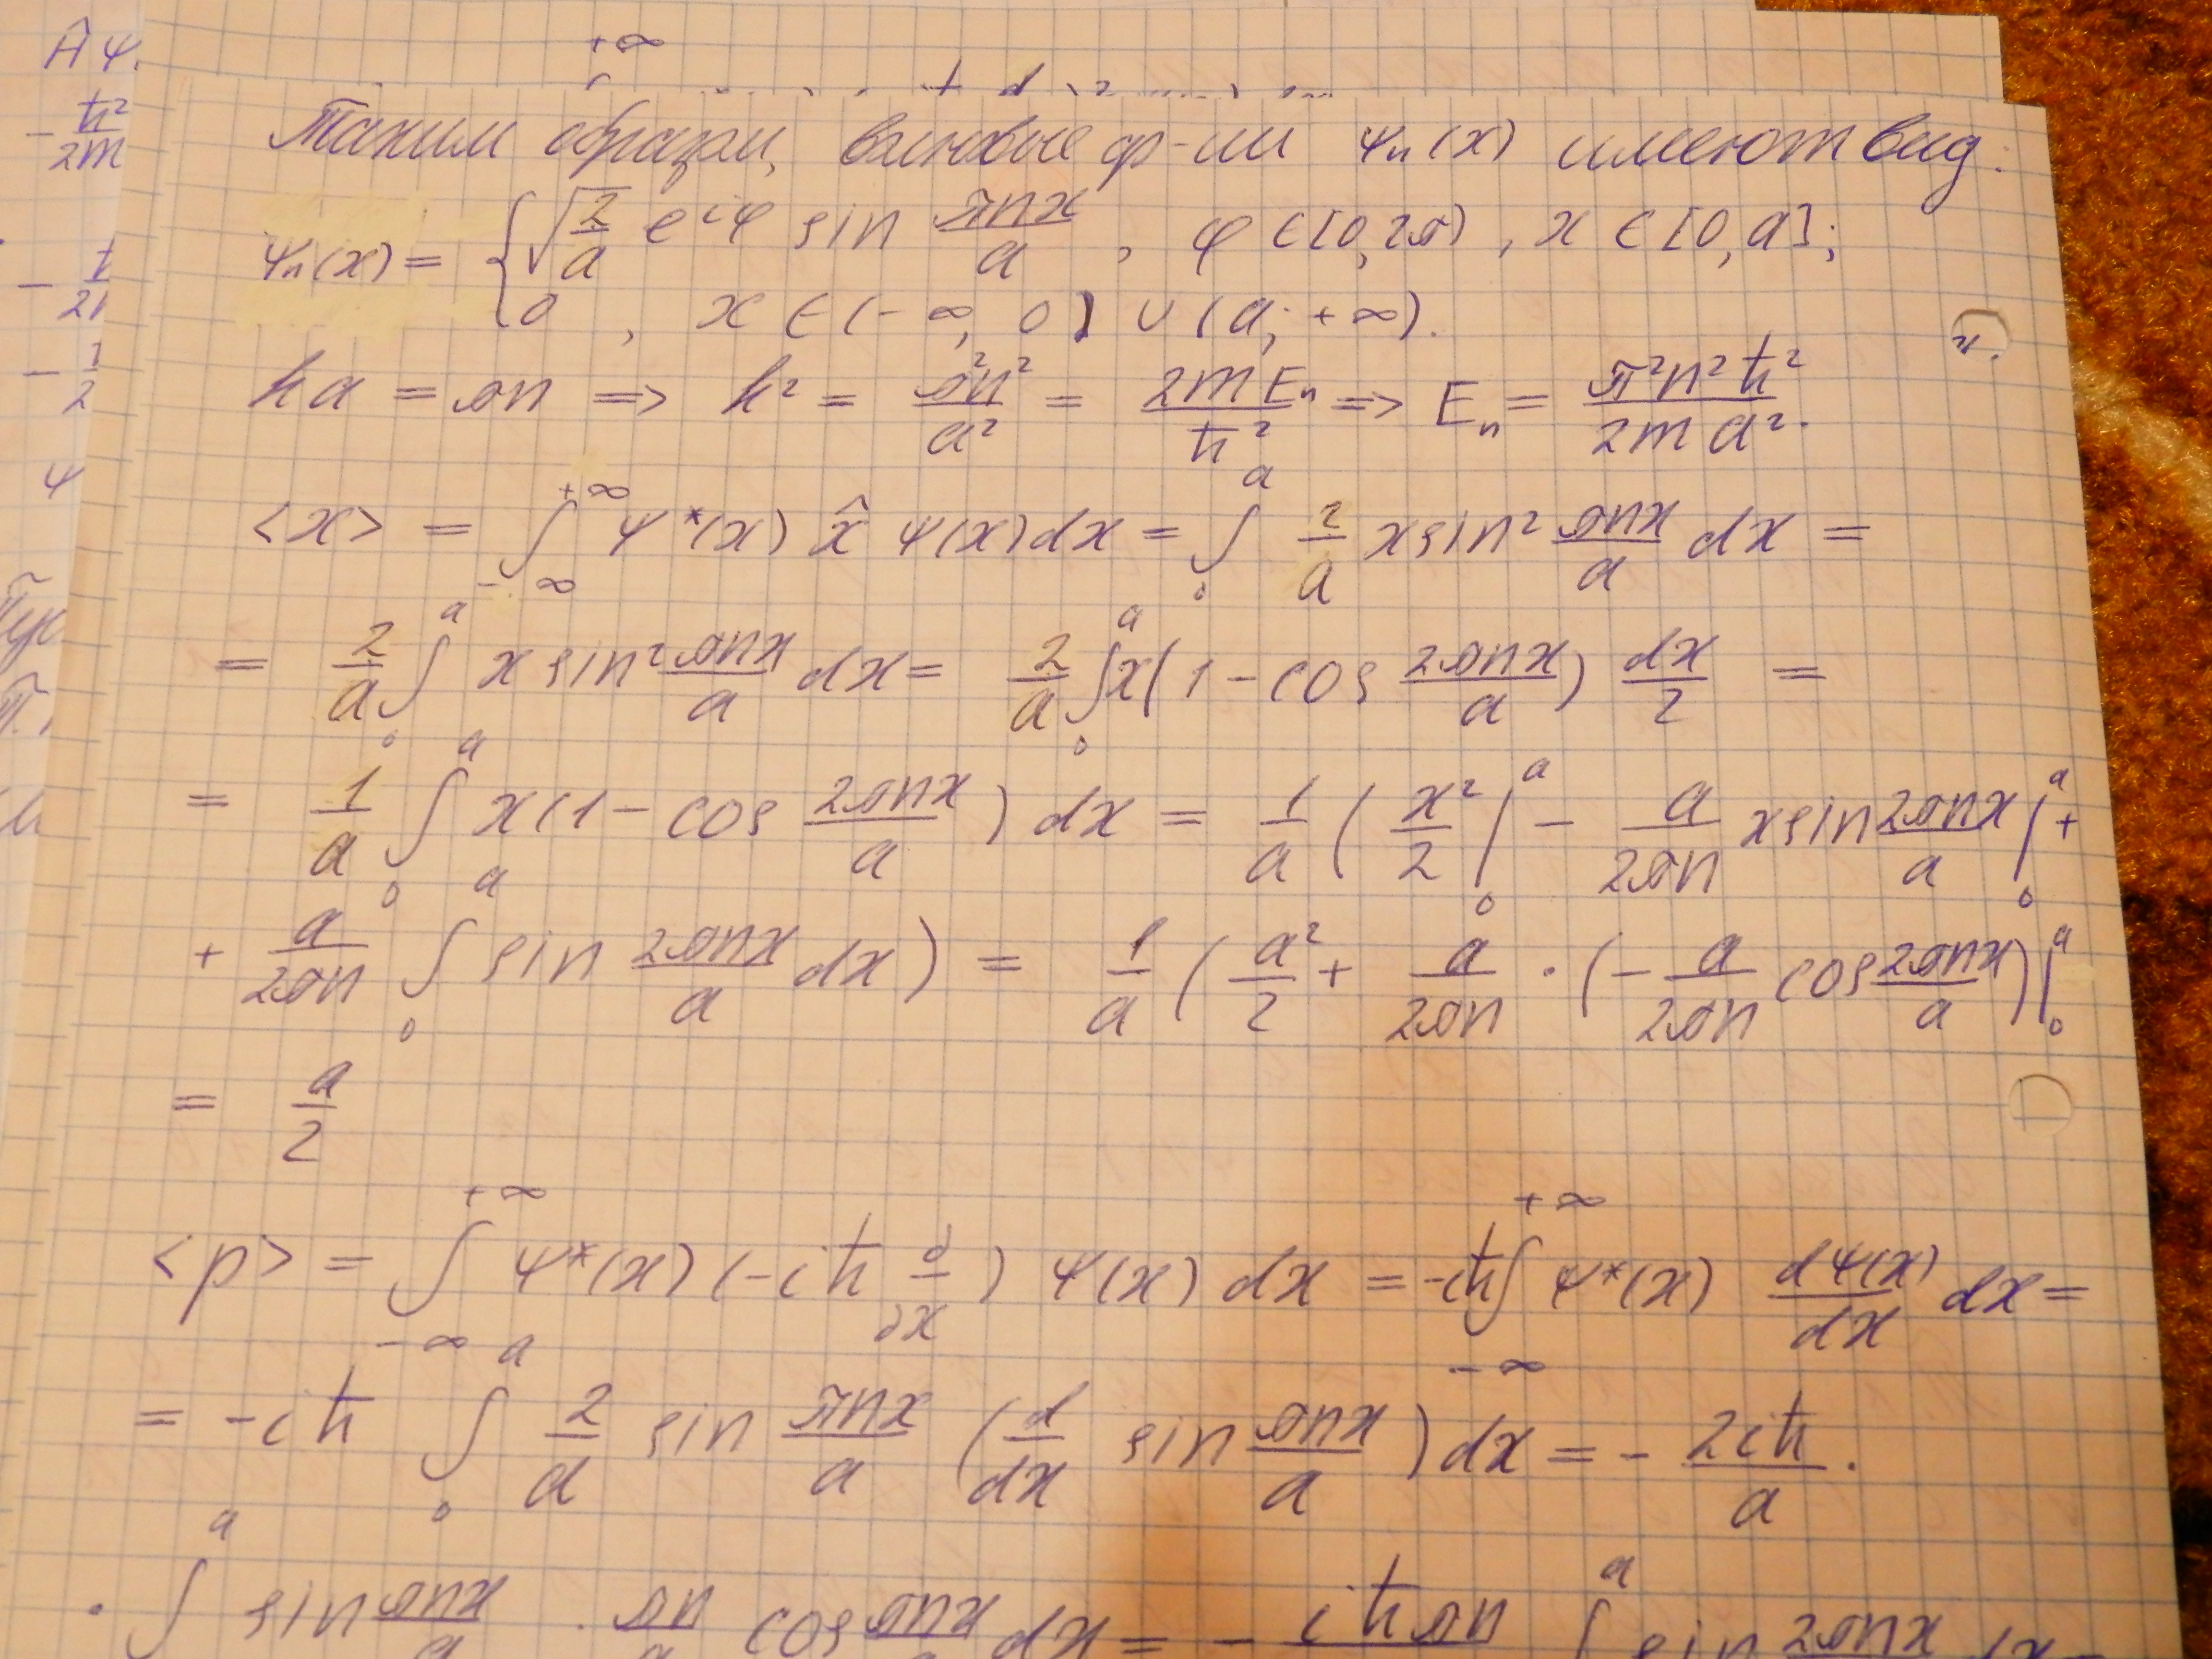 Таким образом, волновые ф-ии ψₙ(x) имеют вид:
ψₙ(x) = { √(2/a) e^{iφ} sin (πnx/a), φ ∈ [0, 2π), x ∈ [0, a];
0, x ∈ (-∞, 0) ∪ (a; +∞).
ka = πn => k² = π²n²/a² = 2mEₙ/ħ² => Eₙ = π²n²ħ²/2ma².
<x> = ∫_{-∞}^{+∞} ψ*(x) x̂ ψ(x)dx = ∫_0^a (2/a) x sin² (πnx/a) dx =
= (2/a) ∫_0^a x sin² (πnx/a) dx = (2/a) ∫_0^a x(1 - cos (2πnx/a)) dx/2 =
= (1/a) ∫_0^a x(1 - cos (2πnx/a)) dx = (1/a) (x²/2 |_0^a - (a/2πn) x sin (2πnx/a) |_0^a +
+ (a/2πn) ∫_0^a sin (2πnx/a) dx) = (1/a) (a²/2 + (a/2πn) · (-(a/2πn) cos (2πnx/a)) |_0^a
= a/2
<p> = ∫_{-∞}^{+∞} ψ*(x) (-iħ ∂/∂x) ψ(x) dx = -iħ ∫_{-∞}^{+∞} ψ*(x) (dψ(x)/dx) dx =
= -iħ ∫_0^a (2/a) sin (πnx/a) (d/dx sin (πnx/a)) dx = - (2iħ/a) ·
· ∫^a sin (πnx/a) · (πn/a) cos (πnx/a) dx = - iħπn ∫^a sin 2πnx dx =
Ĥψ.
- ħ²/2m
- 1/2
ψ